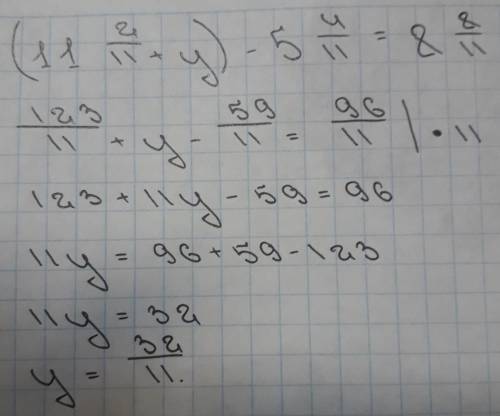 (11 2/11 + y) - 5 4/11 = 8 8/11
123/11 + y - 59/11 = 96/11 | · 11
123 + 11y - 59 = 96
11y = 96 + 59 - 123
11y = 32
y = 32/11.